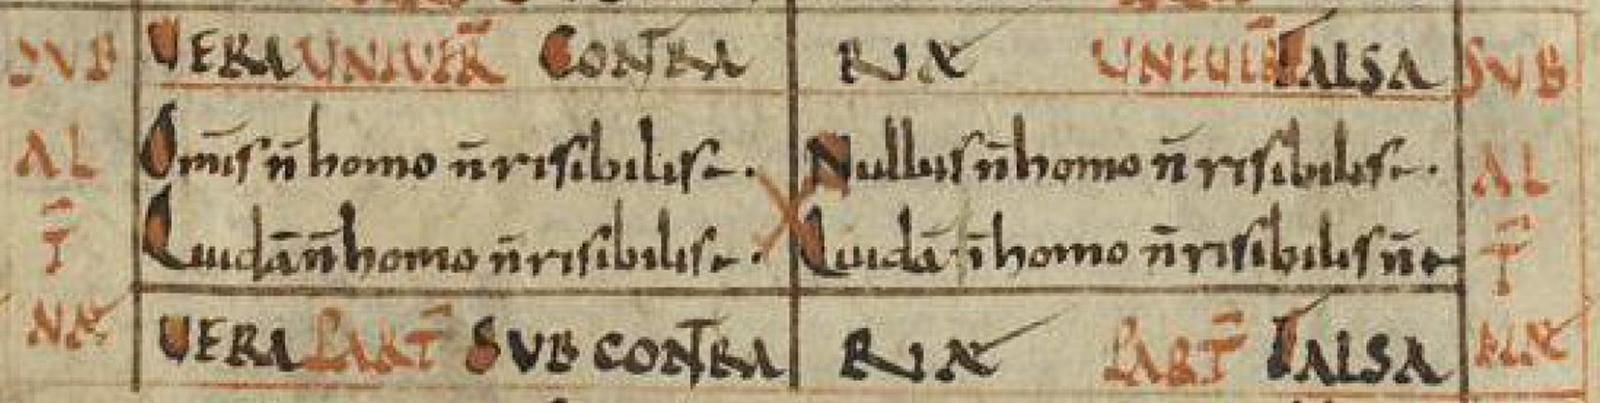 SUB VERA UNIVER̄ CONTRA RIÆ UNIUER̄ FALSA SUB
AL Om̄is n̄ homo n̄ risibilis ÷. Nullus n̄ homo n̄ risibilis ÷. AL
T̄ Quidā n̄ homo n̄ risibilis ÷. Quidā n̄ homo n̄ risibilis n̄ ÷ T̄
NÆ VERA PART̄ SUBCONTRA RIÆ PART̄ FALSA NÆ